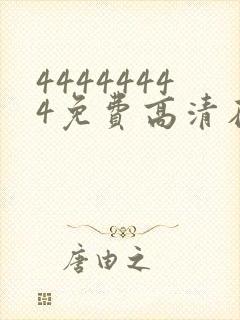 4444444
4免费高清在
唐由之